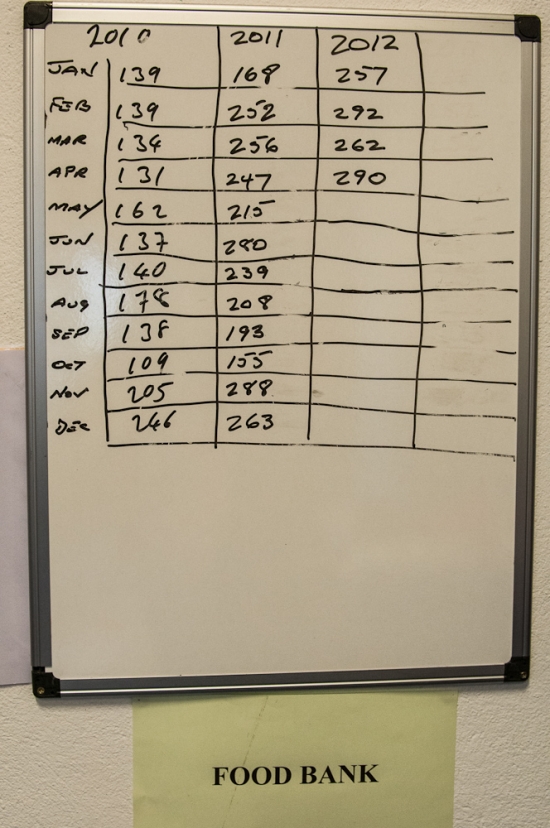 2010 2011 2012
JAN 139 168 257
FEB 139 252 292
MAR 134 256 262
APR 131 247 290
MAY 162 215
JUN 137 280
JUL 140 239
AUG 178 208
SEP 138 193
OCT 109 155
NOV 205 288
DEC 246 263
FOOD BANK